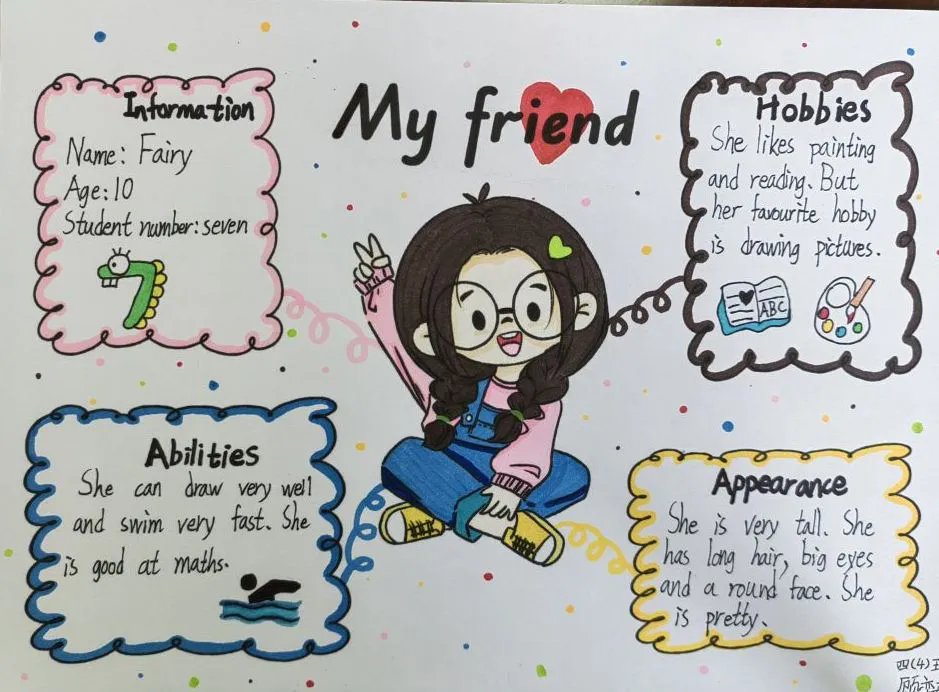 My friend
Information
Name: Fairy
Age: 10
Student number: seven
Hobbies
She likes painting
and reading. But
her favourite hobby
is drawing pictures.
ABC
Abilities
She can draw very well
and swim very fast. She
is good at maths.
Appearance
She is very tall. She
has long hair, big eyes
and a round face. She
is pretty.
四(4)